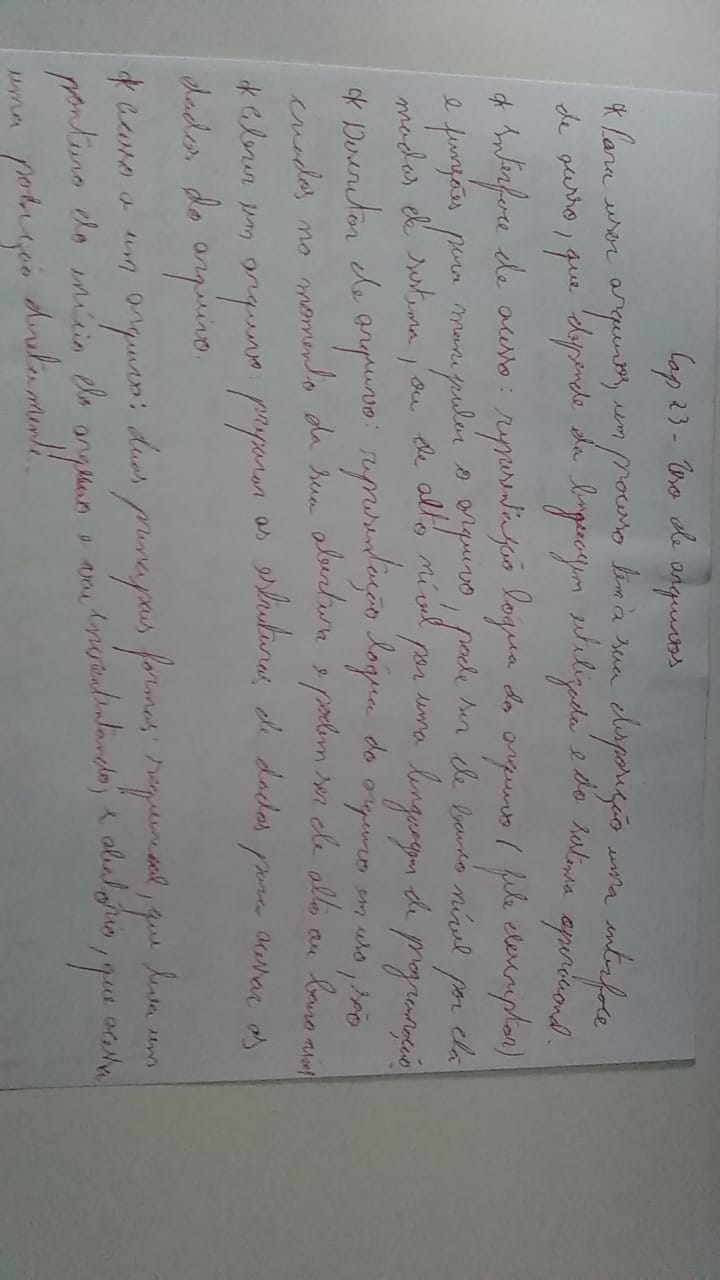 Cap 23 - Uso de arquivos
* Para usar arquivos, um processo tem à sua disposição uma interface
de acesso, que depende da linguagem utilizada e do sistema operacional.
* Interface de acesso: representação lógica do arquivo (file descriptor)
e funções para manipular o arquivo, pode ser de baixo nível por cha
madas de sistema, ou de alto nível por uma linguagem de programação.
* Descritor de arquivo: representação lógica do arquivo em uso, são
criados no momento da sua abertura e podem ser de alto ou baixo nível
* Abrir um arquivo: preparar as estruturas de dados para acessar os
dados do arquivo.
* Acesso a um arquivo: duas principais formas: sequencial, que leva um
ponteiro do início do arquivo e vai incrementando; e aleatório, que acessa
uma posição diretamente.